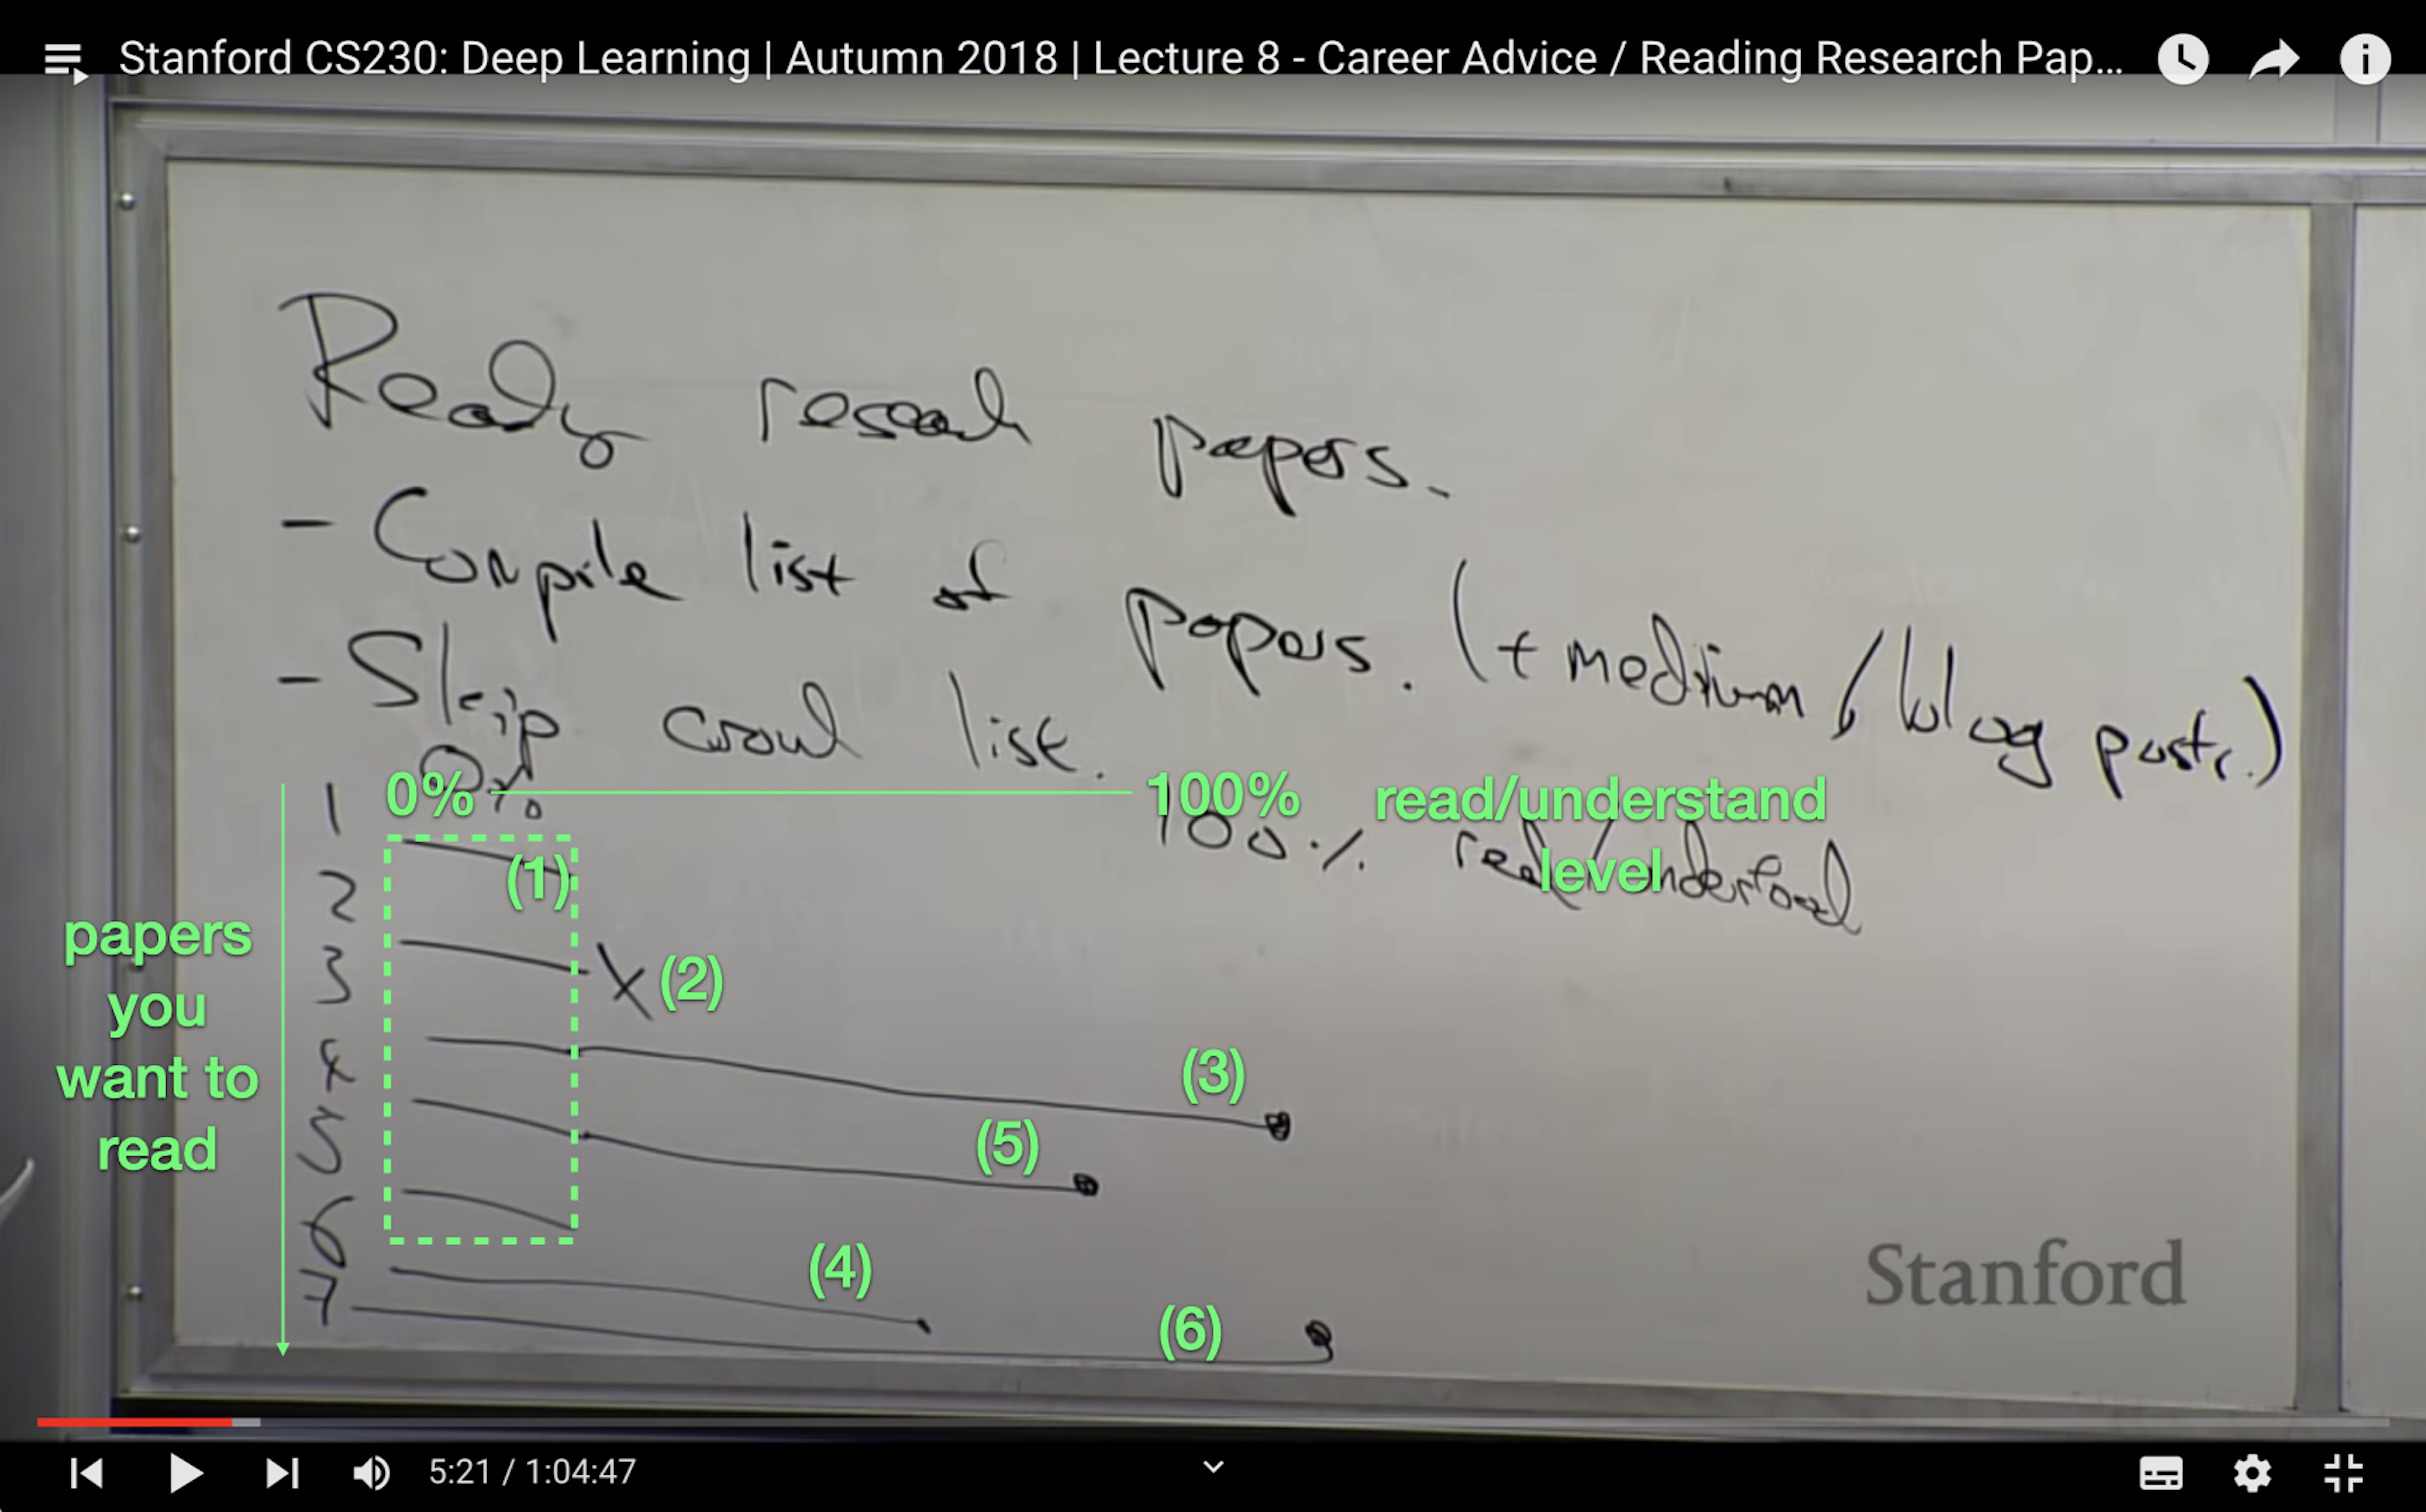 Stanford CS230: Deep Learning | Autumn 2018 | Lecture 8 - Career Advice / Reading Research Pap...
Reading research papers.
- Compile list of papers. (+ medium / blog posts.)
- Skip around list.
0% 100% read/understood
0% 100% read/understand
level
papers
you
want to
read
1
2 (1)
3 X (2)
4 (3)
5 (5)
6 (4)
7 (6)
Stanford
5:21 / 1:04:47